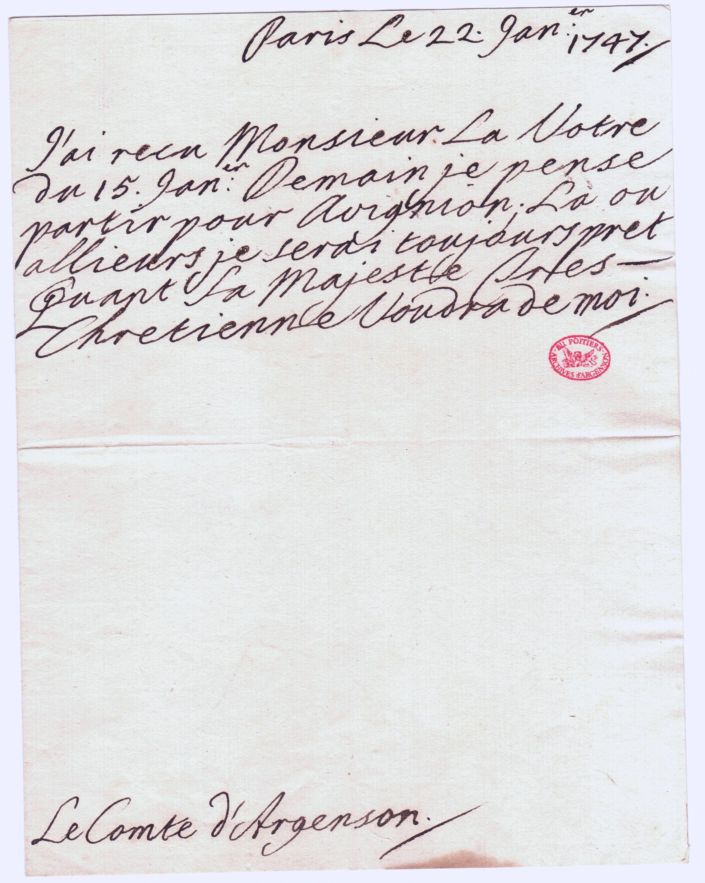 Paris Le 22. Jan:er 1747.
J'ai recu Monsieur La Votre
du 15. Jan:ir Demain je pense
partir pour Avignion. La ou
allieurs je serai toujours pret
Quant Sa Majestée Tres-
Chretienne Voudra de moi.
BU POITIERS
ARCHIVES d'ARGENSON
Le Comte d'Argenson.